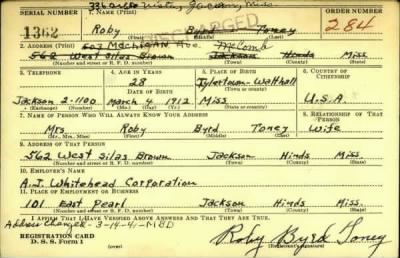 336
Jackson, Miss
SERIAL NUMBER 1. NAME (Print) ORDER NUMBER
DISCHARGED
1362 Roby Byrd Toney 284
(First) (Middle) (Last)
2. ADDRESS (Print) 607 Michigan Ave. McComb
562 West Silas Brown Jackson Hinds Miss
(Number and street or R. F. D. number) (Town) (County) (State)
3. TELEPHONE 4. AGE IN YEARS 5. PLACE OF BIRTH 6. COUNTRY OF CITIZENSHIP
28 Tylertown-Walthall
DATE OF BIRTH (Town or county)
Jackson 2-1100 March 4 1912 Miss U.S.A.
(Exchange) (Number) (Mo.) (Day) (Yr.) (State or country)
7. NAME OF PERSON WHO WILL ALWAYS KNOW YOUR ADDRESS 8. RELATIONSHIP OF THAT PERSON
Mrs Roby Byrd Toney Wife
(Mr., Mrs., Miss) (First) (Middle) (Last)
9. ADDRESS OF THAT PERSON
562 West Silas Brown Jackson Hinds Miss.
(Number and street or R. F. D. number) (Town) (County) (State)
10. EMPLOYER'S NAME
A.J. Whitehead Corporation
11. PLACE OF EMPLOYMENT OR BUSINESS
101 East Pearl Jackson Hinds Miss.
(Number and street or R. F. D. number) (Town) (County) (State)
I AFFIRM THAT I HAVE VERIFIED ABOVE ANSWERS AND THAT THEY ARE TRUE.
Address Changed - 3-14-41-MBD
REGISTRATION CARD
D. S. S. FORM 1
Roby Byrd Toney
(Registrant's signature)